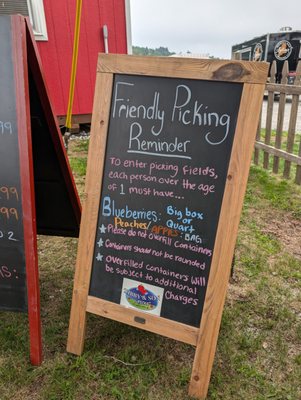 Friendly Picking
Reminder
To enter picking fields,
each person over the age
of 1 must have...
Blueberries: Big box
or
Quart
Peaches/Apples: BAG
★ Please do not overfill containers
★ Containers should not be rounded
★ Overfilled containers will
be subject to additional
charges